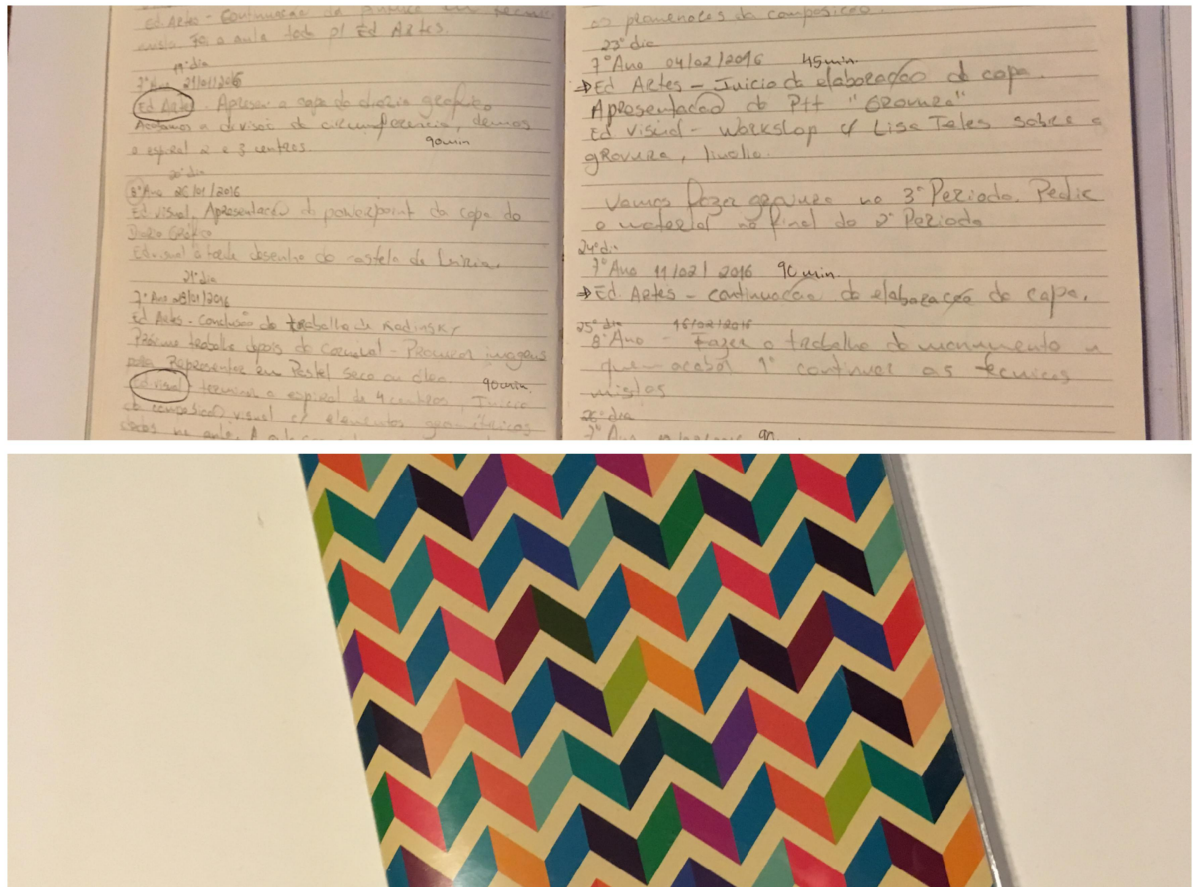 Ed Artes - Continuação da
aula. Foi a aula toda p/ Ed Artes.
19º dia
7º Ano 21/01/2016
Ed Artes. Apresen a capa do diário gráfico.
Acabamos a divisão da circunferência, demos
a espiral 2 e 3 centros. 90min
20º dia
8º Ano 26/01/2016
Ed visual. Apresentação do powerpoint da capa do
Diário Gráfico
Ed visual à tarde desenho do castelo de Leiria.
21º dia
7º Ano 28/01/2016
Ed Artes - Conclusão do trabalho de Kadinsky
Próximo trabalho depois do Carnaval - Procurar imagens
para Representar em Pastel seco ou óleo. 90min
Ed visual terminar a espiral de 4 centros, Início
da composição visual c/ elementos geométricos
dados na aula. A
os promenores da composição.
23º dia
7º Ano 04/02/2016 45min
→Ed Artes - Inicio da elaboração da capa.
Apresentação do Ptt "GRavuRa"
Ed visual - Workshop c/ Lisa Teles sobre a
gRavura, linolio.
Vamos fazer gravura no 3º Periodo. Pedir
o material no final do 2º Periodo
24º dia
7º Ano 11/02/2016 90 min.
→Ed Artes - continuação da elaboração da capa.
25º dia 16/02/2016
8º Ano - Fazer o trabalho do monumento a
quem acabar 1º continuar as técnicas
mistas
26º dia
7º Ano 90